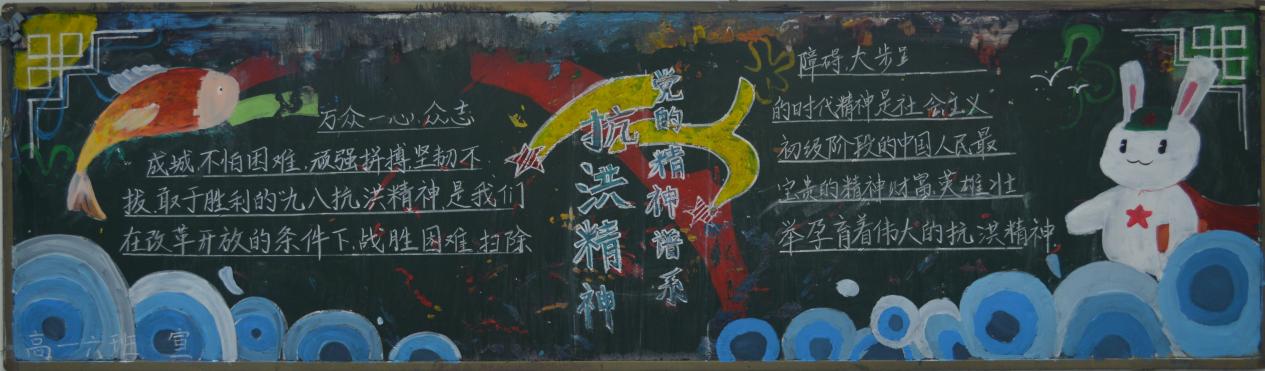 万众一心、众志
成城,不怕困难,顽强拼搏,坚韧不
拔,敢于胜利的九八抗洪精神,是我们
在改革开放的条件下,战胜困难,扫除
抗洪精神
党的精神谱系
障碍,大步
的时代精神是社会主义
初级阶段的中国人民最
宝贵的精神财富,英雄壮
举孕育着伟大的抗洪精神
高一六班 宣